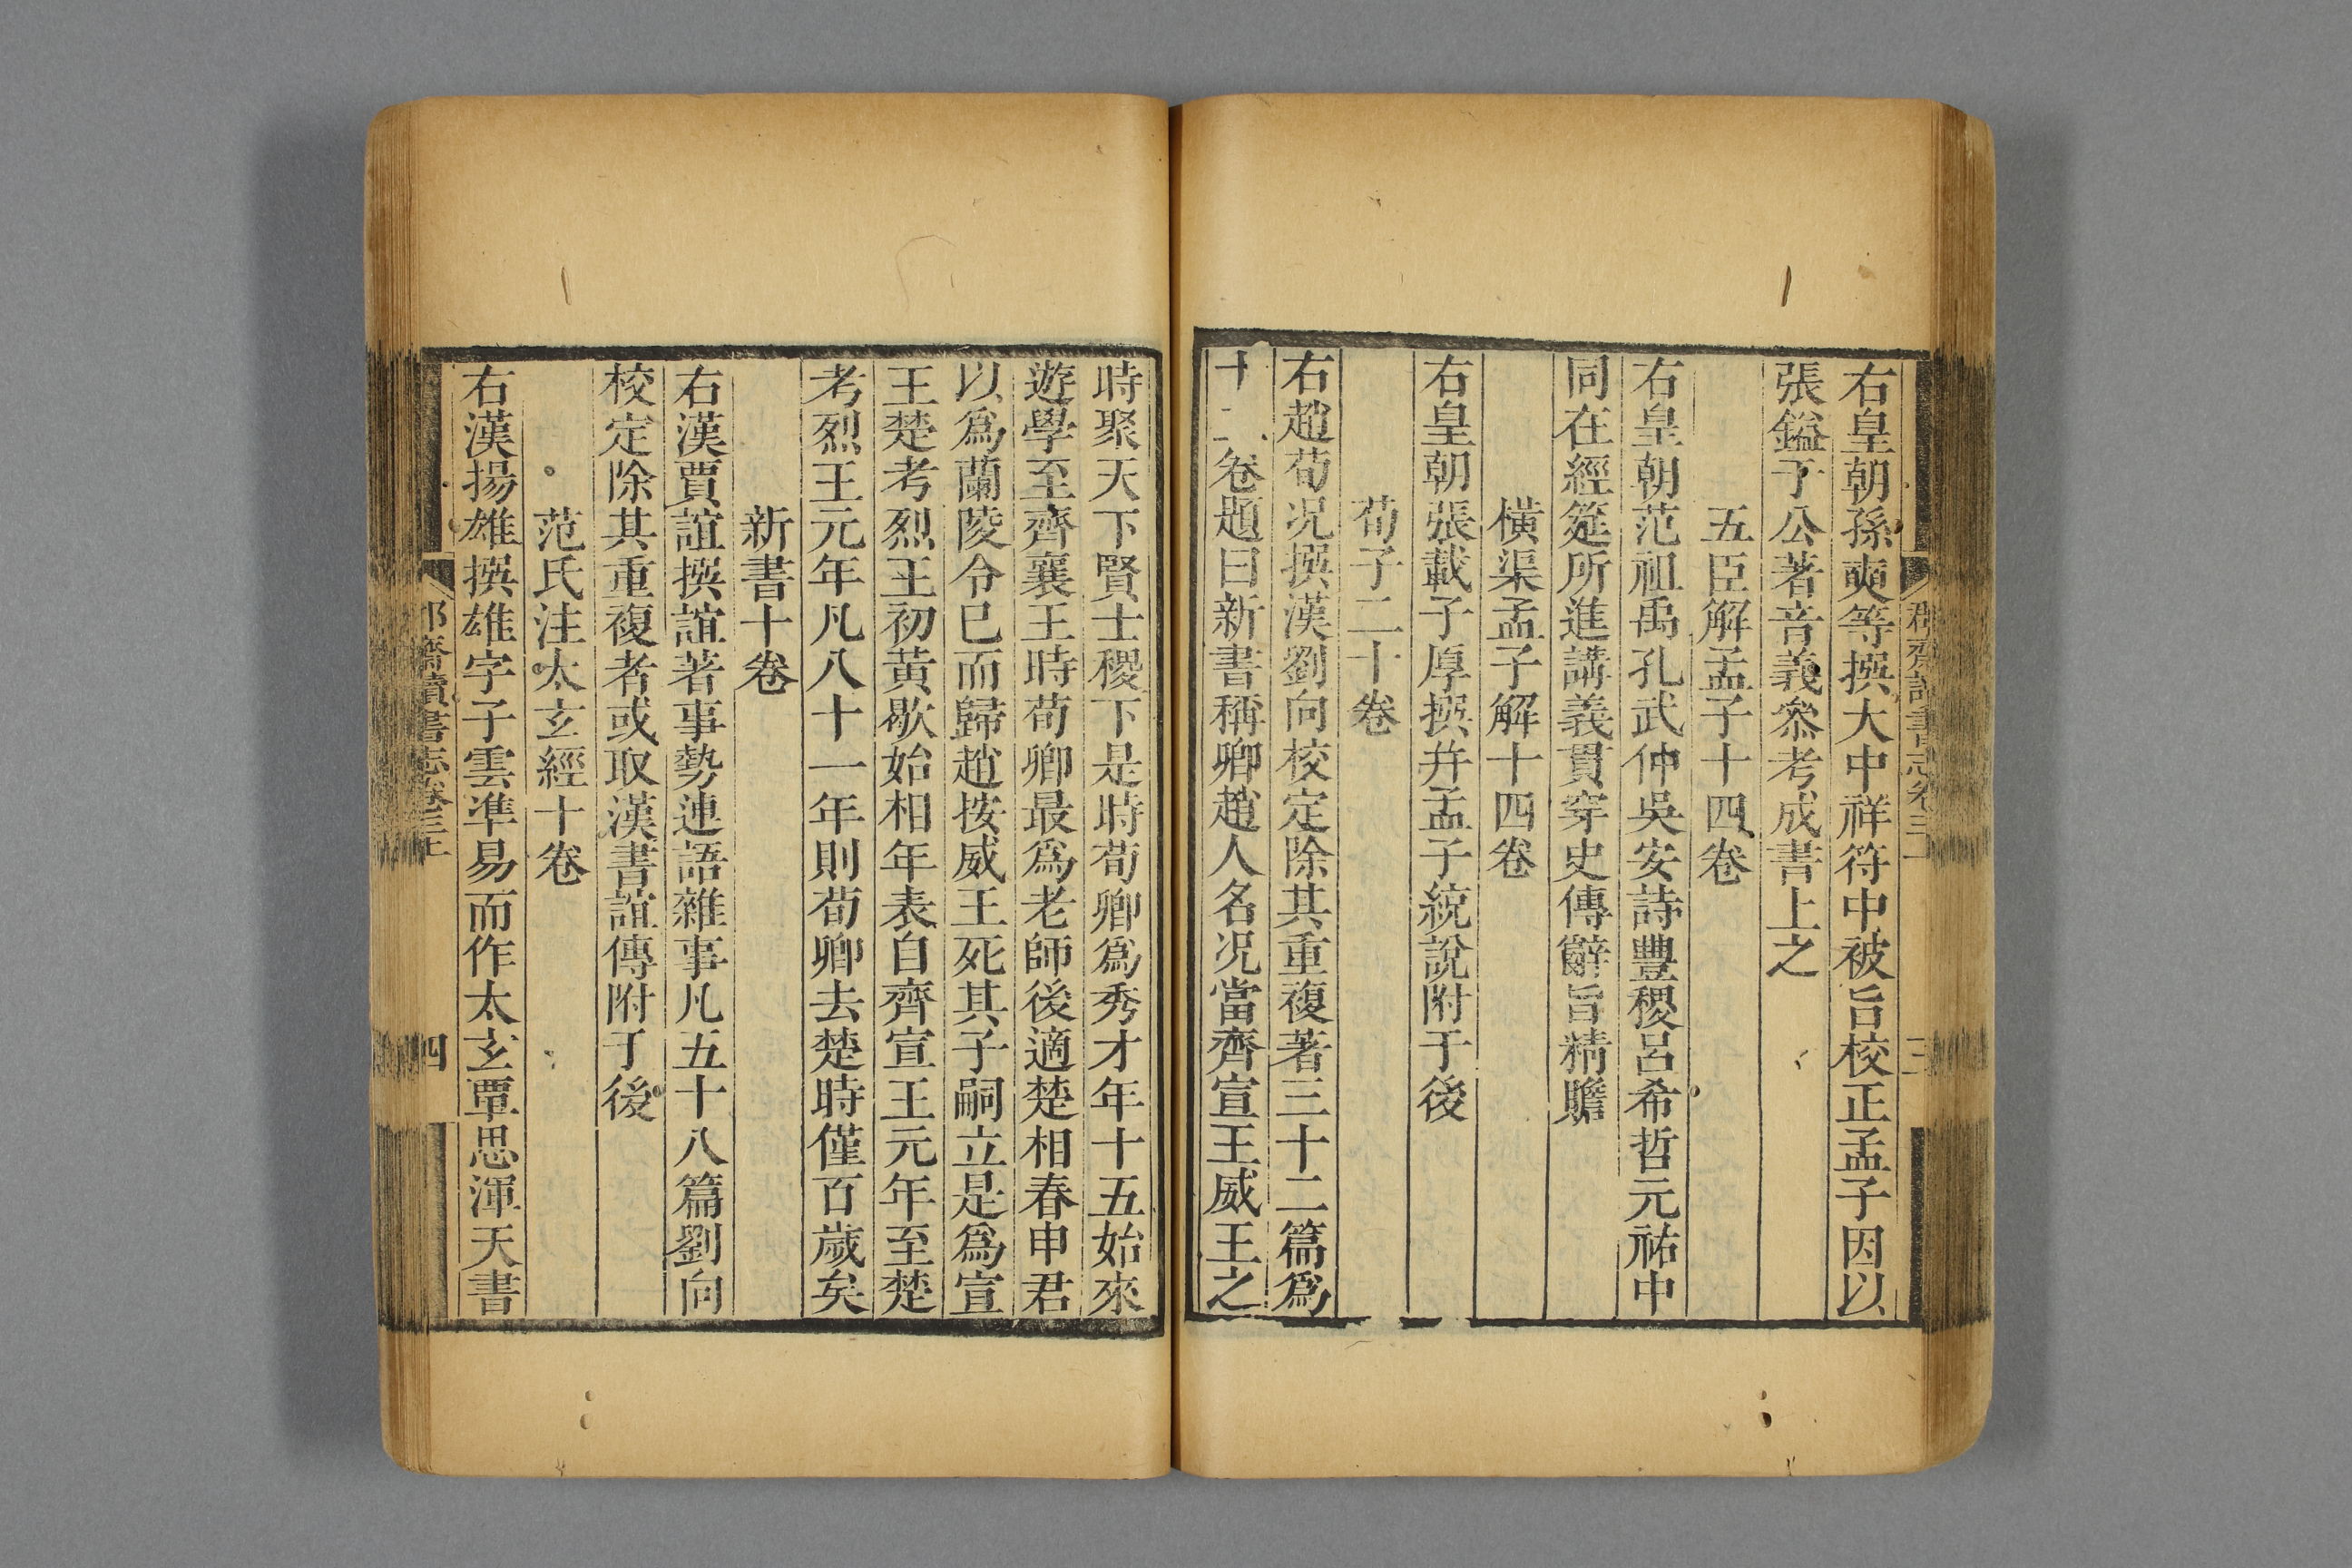 右皇朝孫奭等撰大中祥符中被旨校正孟子因以
張鎰丁公著音義叅考成書上之
五臣解孟子十四卷
右皇朝范祖禹孔武仲吳安詩豐稷呂希哲元祐中
同在經筵所進講義貫穿史傳辭旨精贍
橫渠孟子解十四卷
右皇朝張載子厚撰幷孟子統說附于後
荀子二十卷
右趙荀况撰漢劉向校定除其重複著三十二篇爲
十二卷題曰新書稱卿趙人名况當齊宣王威王之
時聚天下賢士稷下是時荀卿爲秀才年十五始來
遊學至齊襄王時荀卿最爲老師後適楚相春申君
以爲蘭陵令已而歸趙按威王死其子嗣立是爲宣
王楚考烈王初黃歇始相年表自齊宣王元年至楚
考烈王元年凡八十一年則荀卿去楚時僅百歲矣
新書十卷
右漢賈誼撰誼著事勢連語雜事凡五十八篇劉向
校定除其重複者或取漢書誼傳附于後
范氏注太玄經十卷
右漢揚雄撰雄字子雲準易而作太玄覃思渾天書
郡齋讀書志卷三上
四